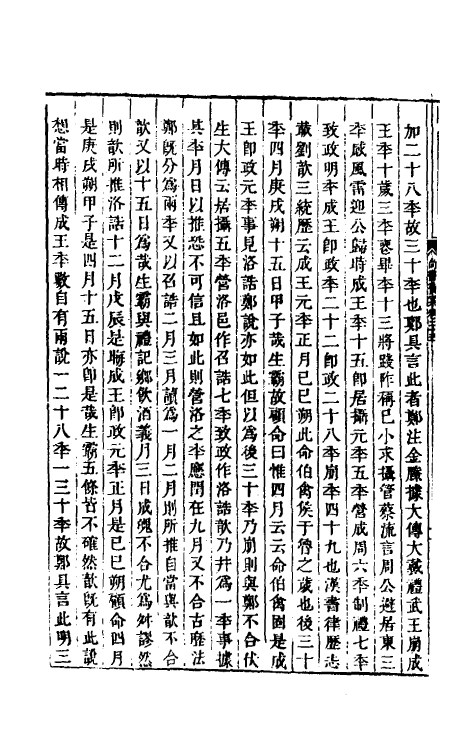 加二十八年故三十年也鄭具言此者鄭注金縢據大傳大戴禮武王崩成
王年十歲三年喪畢年十三將踐阼稱已小求攝管蔡流言周公避居東三
年感風雷迎公歸時成王年十五卽居攝元年五年營成周六年制禮七年
致政明年成王卽政年二十二卽政二十八年崩年四十九也漢書律歷志
載劉歆三統歷云成王元年正月己巳朔此命伯禽矦于魯之歲也後三十
年四月庚戌朔十五日甲子哉生霸故顧命曰惟四月云云命伯禽固是成
王卽政元年事見洛誥鄭說亦如此但以爲後三十年乃崩則與鄭不合伏
生大傳云居攝五年營洛邑作召誥七年致政作洛誥歆乃幷爲一年事據
其年月日以推恐不可信且如此則營洛之年應閏在九月又不合古厤法
鄭旣分爲兩年又以召誥二月三月讀爲一月二月則所推自當與歆不合
歆又以十五日爲哉生霸與禮記鄉飲酒義月三日成魄不合尤爲舛謬然
則歆所推洛誥十二月戊辰是晦成王卽政元年正月是己巳朔顧命四月
是庚戌朔甲子是四月十五日亦卽是哉生霸五條皆不確然歆旣有此說
想當時相傳成王年數自有兩說一二十八年一三十年故鄭具言此明三